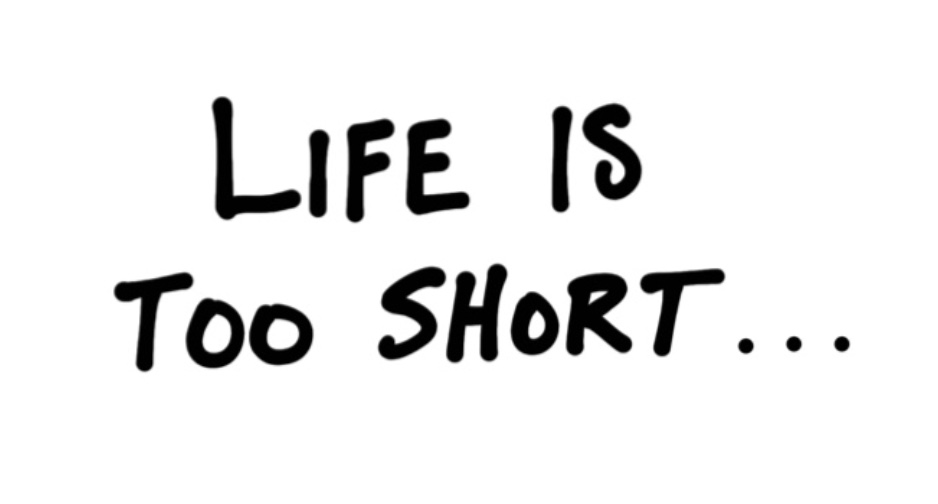 LIFE IS
TOO SHORT...